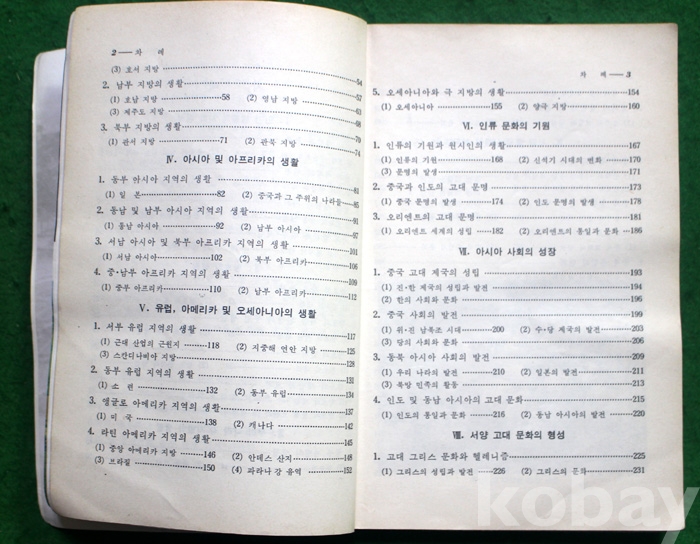 2 ── 차 례
(3) 호서 지방 54
2. 남부 지방의 생활 57
(1) 호남 지방 58 (2) 영남 지방 63
(3) 제주도 지방 68
3. 북부 지방의 생활 70
(1) 관서 지방 71 (2) 관북 지방 74
Ⅳ. 아시아 및 아프리카의 생활
1. 동부 아시아 지역의 생활 81
(1) 일 본 82 (2) 중국과 그 주위의 나라들 85
2. 동남 및 남부 아시아 지역의 생활 91
(1) 동남 아시아 92 (2) 남부 아시아 97
3. 서남 아시아 및 북부 아프리카 지역의 생활 101
(1) 서남 아시아 102 (2) 북부 아프리카 106
4. 중·남부 아프리카 지역의 생활 109
(1) 중부 아프리카 110 (2) 남부 아프리카 112
Ⅴ. 유럽, 아메리카 및 오세아니아의 생활
1. 서부 유럽 지역의 생활 117
(1) 근대 산업의 근원지 118 (2) 지중해 연안 지방 125
(3) 스칸디나비아 지방 128
2. 동부 유럽 지역의 생활 131
(1) 소 련 132 (2) 동부 유럽 134
3. 앵글로 아메리카 지역의 생활 137
(1) 미 국 138 (2) 캐나다 142
4. 라틴 아메리카 지역의 생활 145
(1) 중앙 아메리카 지방 146 (2) 안데스 산지 148
(3) 브라질 150 (4) 파라나 강 유역 152
차 례 ── 3
5. 오세아니아와 극 지방의 생활 154
(1) 오세아니아 155 (2) 양극 지방 160
Ⅵ. 인류 문화의 기원
1. 인류의 기원과 원시인의 생활 167
(1) 인류의 기원 168 (2) 신석기 시대의 변화 170
(3) 문명의 발생 171
2. 중국과 인도의 고대 문명 173
(1) 중국 문명의 발생 174 (2) 인도 문명의 발생 178
3. 오리엔트의 고대 문명 181
(1) 오리엔트 세계의 성립 182 (2) 오리엔트의 통일과 문화 186
Ⅶ. 아시아 사회의 성장
1. 중국 고대 제국의 성립 193
(1) 진·한 제국의 성립과 발전 194
(2) 한의 사회와 문화 196
2. 중국 사회의 발전 199
(1) 위·진 남북조 시대 200 (2) 수·당 제국의 발전 203
(3) 당의 사회와 문화 206
3. 동북 아시아 사회의 발전 209
(1) 우리 나라의 발전 210 (2) 일본의 발전 211
(3) 북방 민족의 활동 213
4. 인도 및 동남 아시아의 고대 문화 215
(1) 인도의 통일과 문화 216 (2) 동남 아시아의 발전 220
Ⅷ. 서양 고대 문화의 형성
1. 고대 그리스 문화와 헬레니즘 225
(1) 그리스의 성립과 발전 226 (2) 그리스의 문화 231
kobay